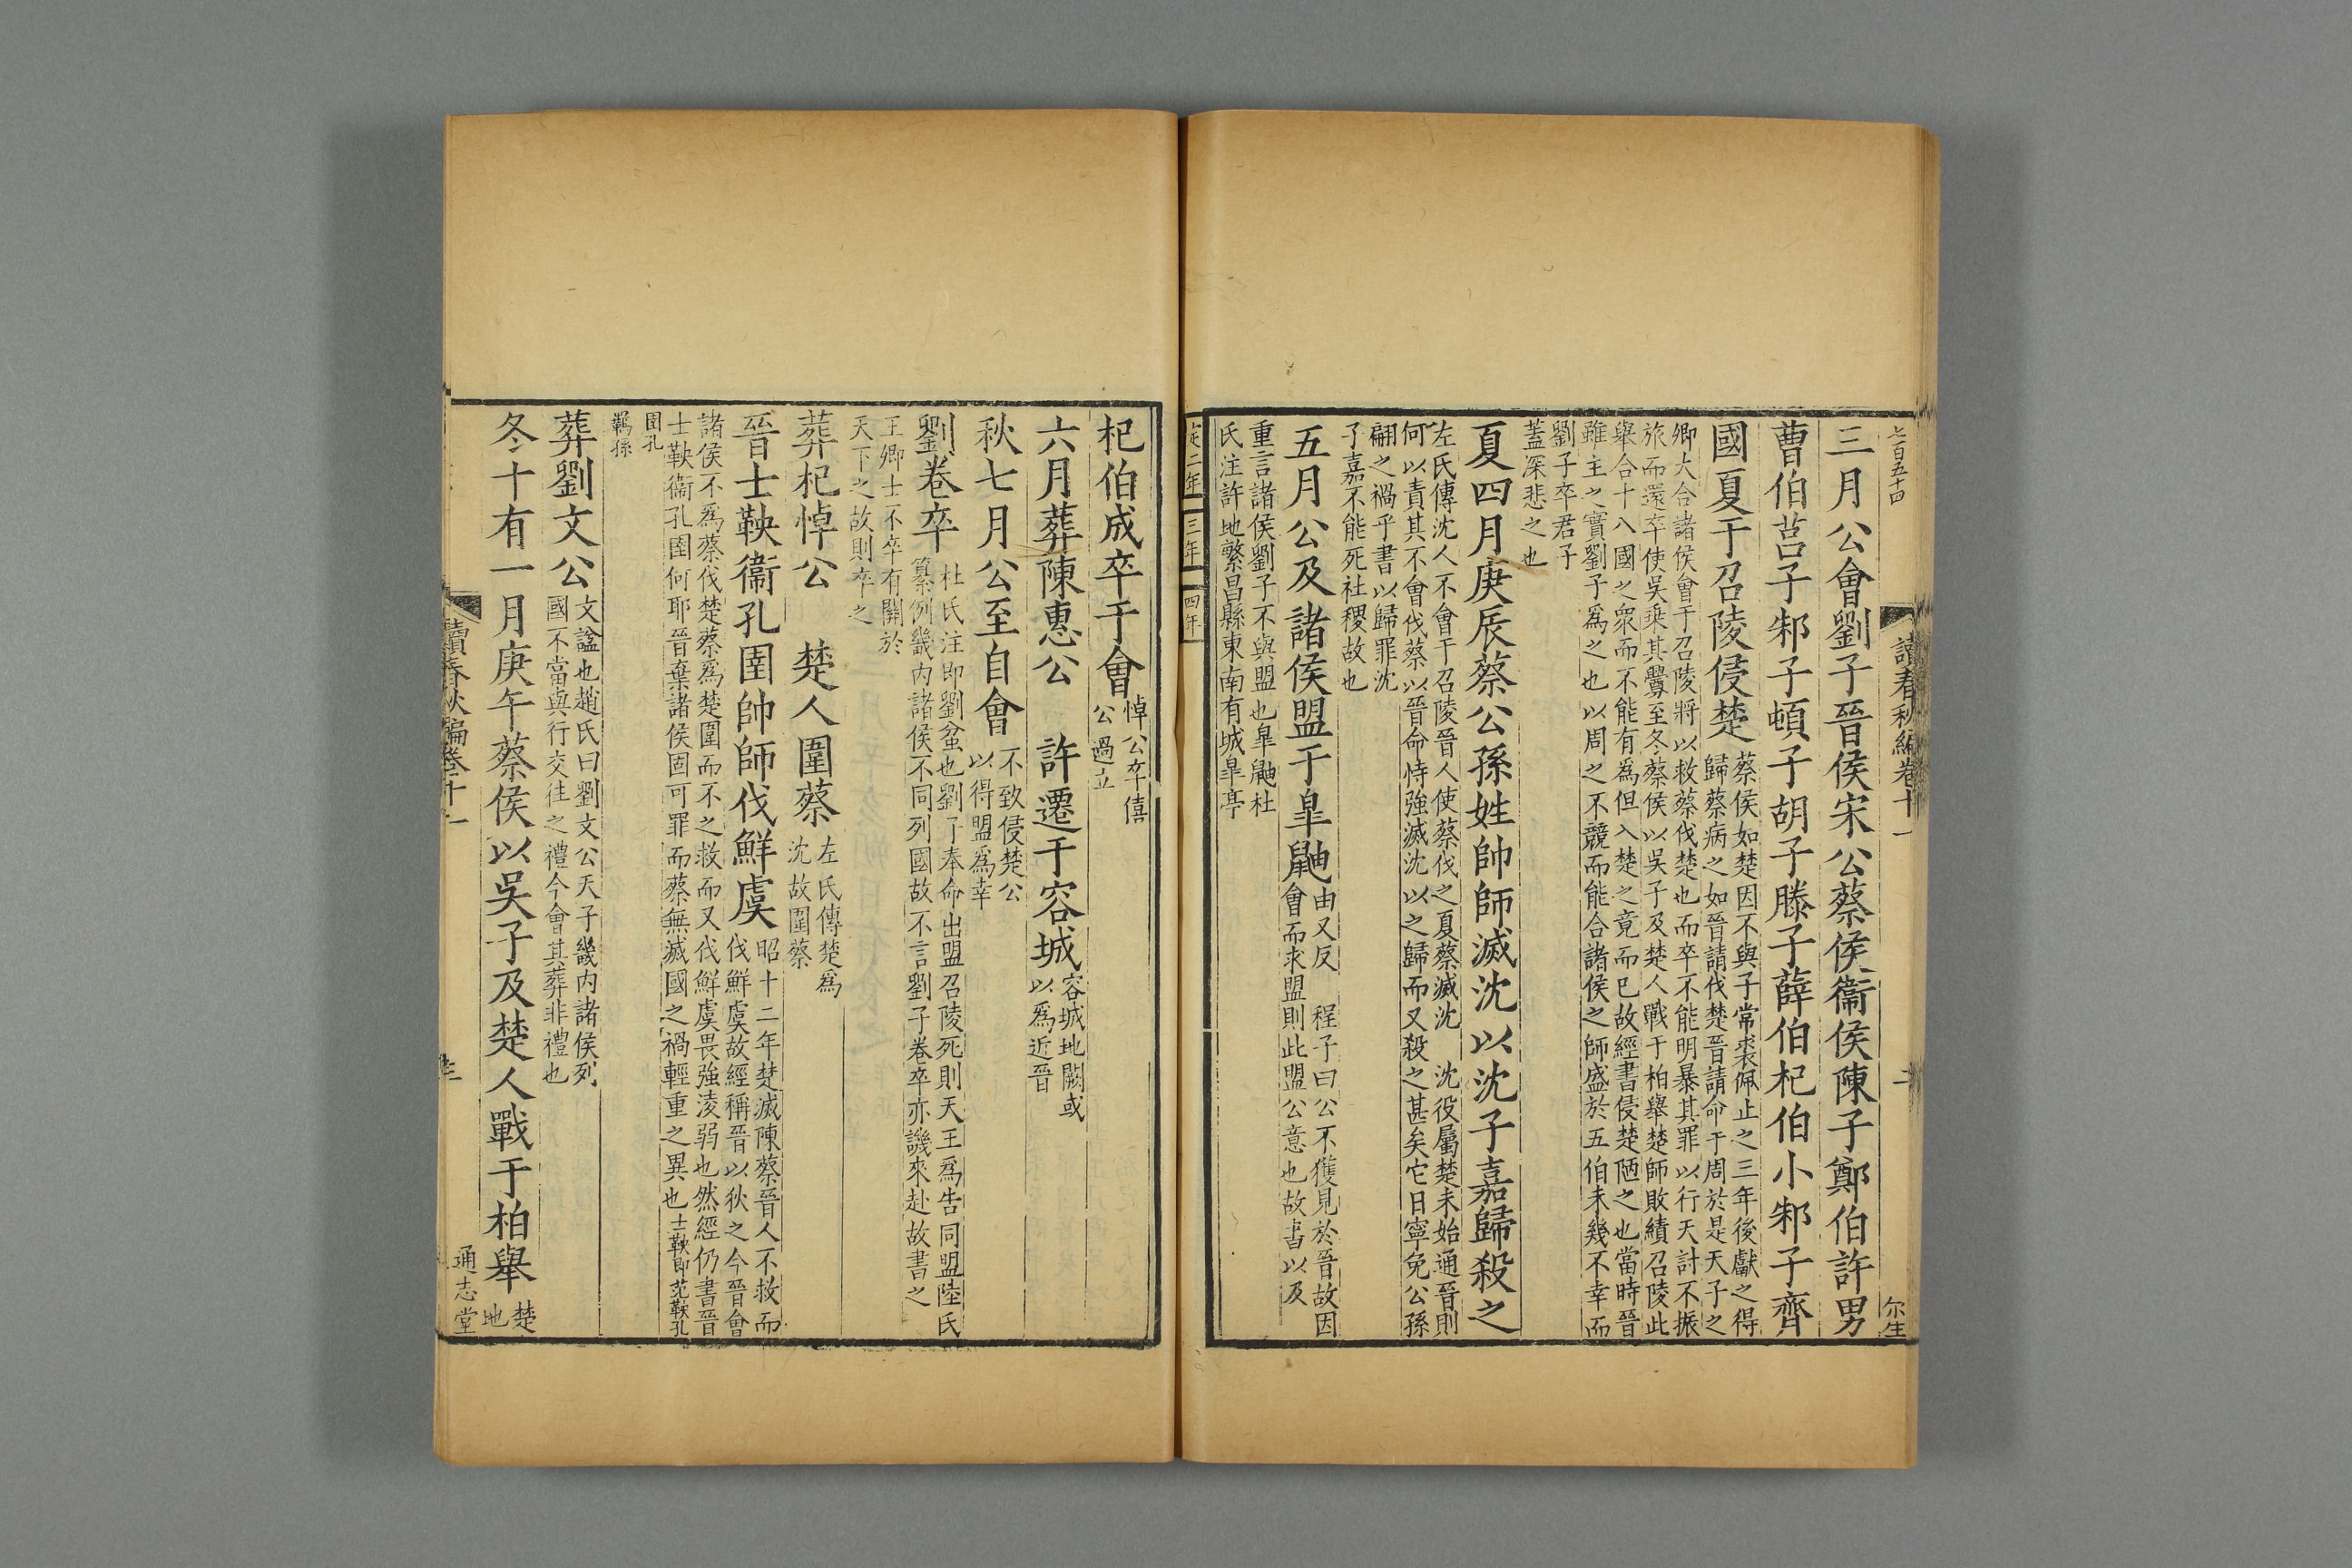 七百五十四
讀春秋編卷十一
二
尔生
三月公會劉子晉侯宋公蔡侯衞侯陳子鄭伯許男
曹伯莒子邾子頓子胡子滕子薛伯杞伯小邾子齊
國夏于召陵侵楚
蔡侯如楚因不與子常裘佩止之三年後獻之得
歸蔡病之如晉請伐楚晉請命于周於是天子之
卿大合諸侯會于召陵將以救蔡伐楚也而卒不能明暴其罪以行天討不振
旅而還卒使吳乘其釁至冬蔡侯以吳子及楚人戰于柏舉楚師敗績召陵此
舉合十八國之衆而不能有爲但入楚之竟而已故經書侵楚陋之也當時晉
雖主之實劉子爲之也以周之不競而能合諸侯之師盛於五伯未幾不幸而
劉子卒君子
蓋深悲之也
夏四月庚辰蔡公孫姓帥師滅沈以沈子嘉歸殺之
左氏傳沈人不會于召陵晉人使蔡伐之夏蔡滅沈 沈役屬楚未始通晉則
何以責其不會伐蔡以晉命恃強滅沈以之歸而又殺之甚矣它日寧免公孫
翩之禍乎書以歸罪沈
子嘉不能死社稷故也
五月公及諸侯盟于臯鼬
由又反 程子曰公不獲見於晉故因
會而求盟則此盟公意也故書以及
重言諸侯劉子不與盟也臯鼬杜
氏注許地繁昌縣東南有城臯亭
定二年 三年 四年
杞伯成卒于會
悼公卒僖
公過立
六月葬陳惠公 許遷于容城
容城地闕或
以爲近晉
秋七月公至自會
不致侵楚公
以得盟爲幸
劉卷卒
杜氏注即劉蚠也劉子奉命出盟召陵死則天王爲告同盟陸氏
纂例畿内諸侯不同列國故不言劉子卷卒亦譏來赴故書之
王卿士不卒有關於
天下之故則卒之
葬杞悼公 楚人圍蔡
左氏傳楚爲
沈故圍蔡
晉士鞅衞孔圉帥師伐鮮虞
昭十二年楚滅陳蔡晉人不救而
伐鮮虞故經稱晉以狄之今晉會
諸侯不爲蔡伐楚蔡爲楚圍而不之救而又伐鮮虞畏強淩弱也然經仍書晉
士鞅衞孔圉何耶晉棄諸侯固可罪而蔡無滅國之禍輕重之異也士鞅即范鞅孔
圉孔
羈孫
葬劉文公
文諡也趙氏曰劉文公天子畿内諸侯列
國不當與行交往之禮今會其葬非禮也
冬十有一月庚午蔡侯以吳子及楚人戰于柏舉
楚
地
讀春秋編卷十一
通志堂